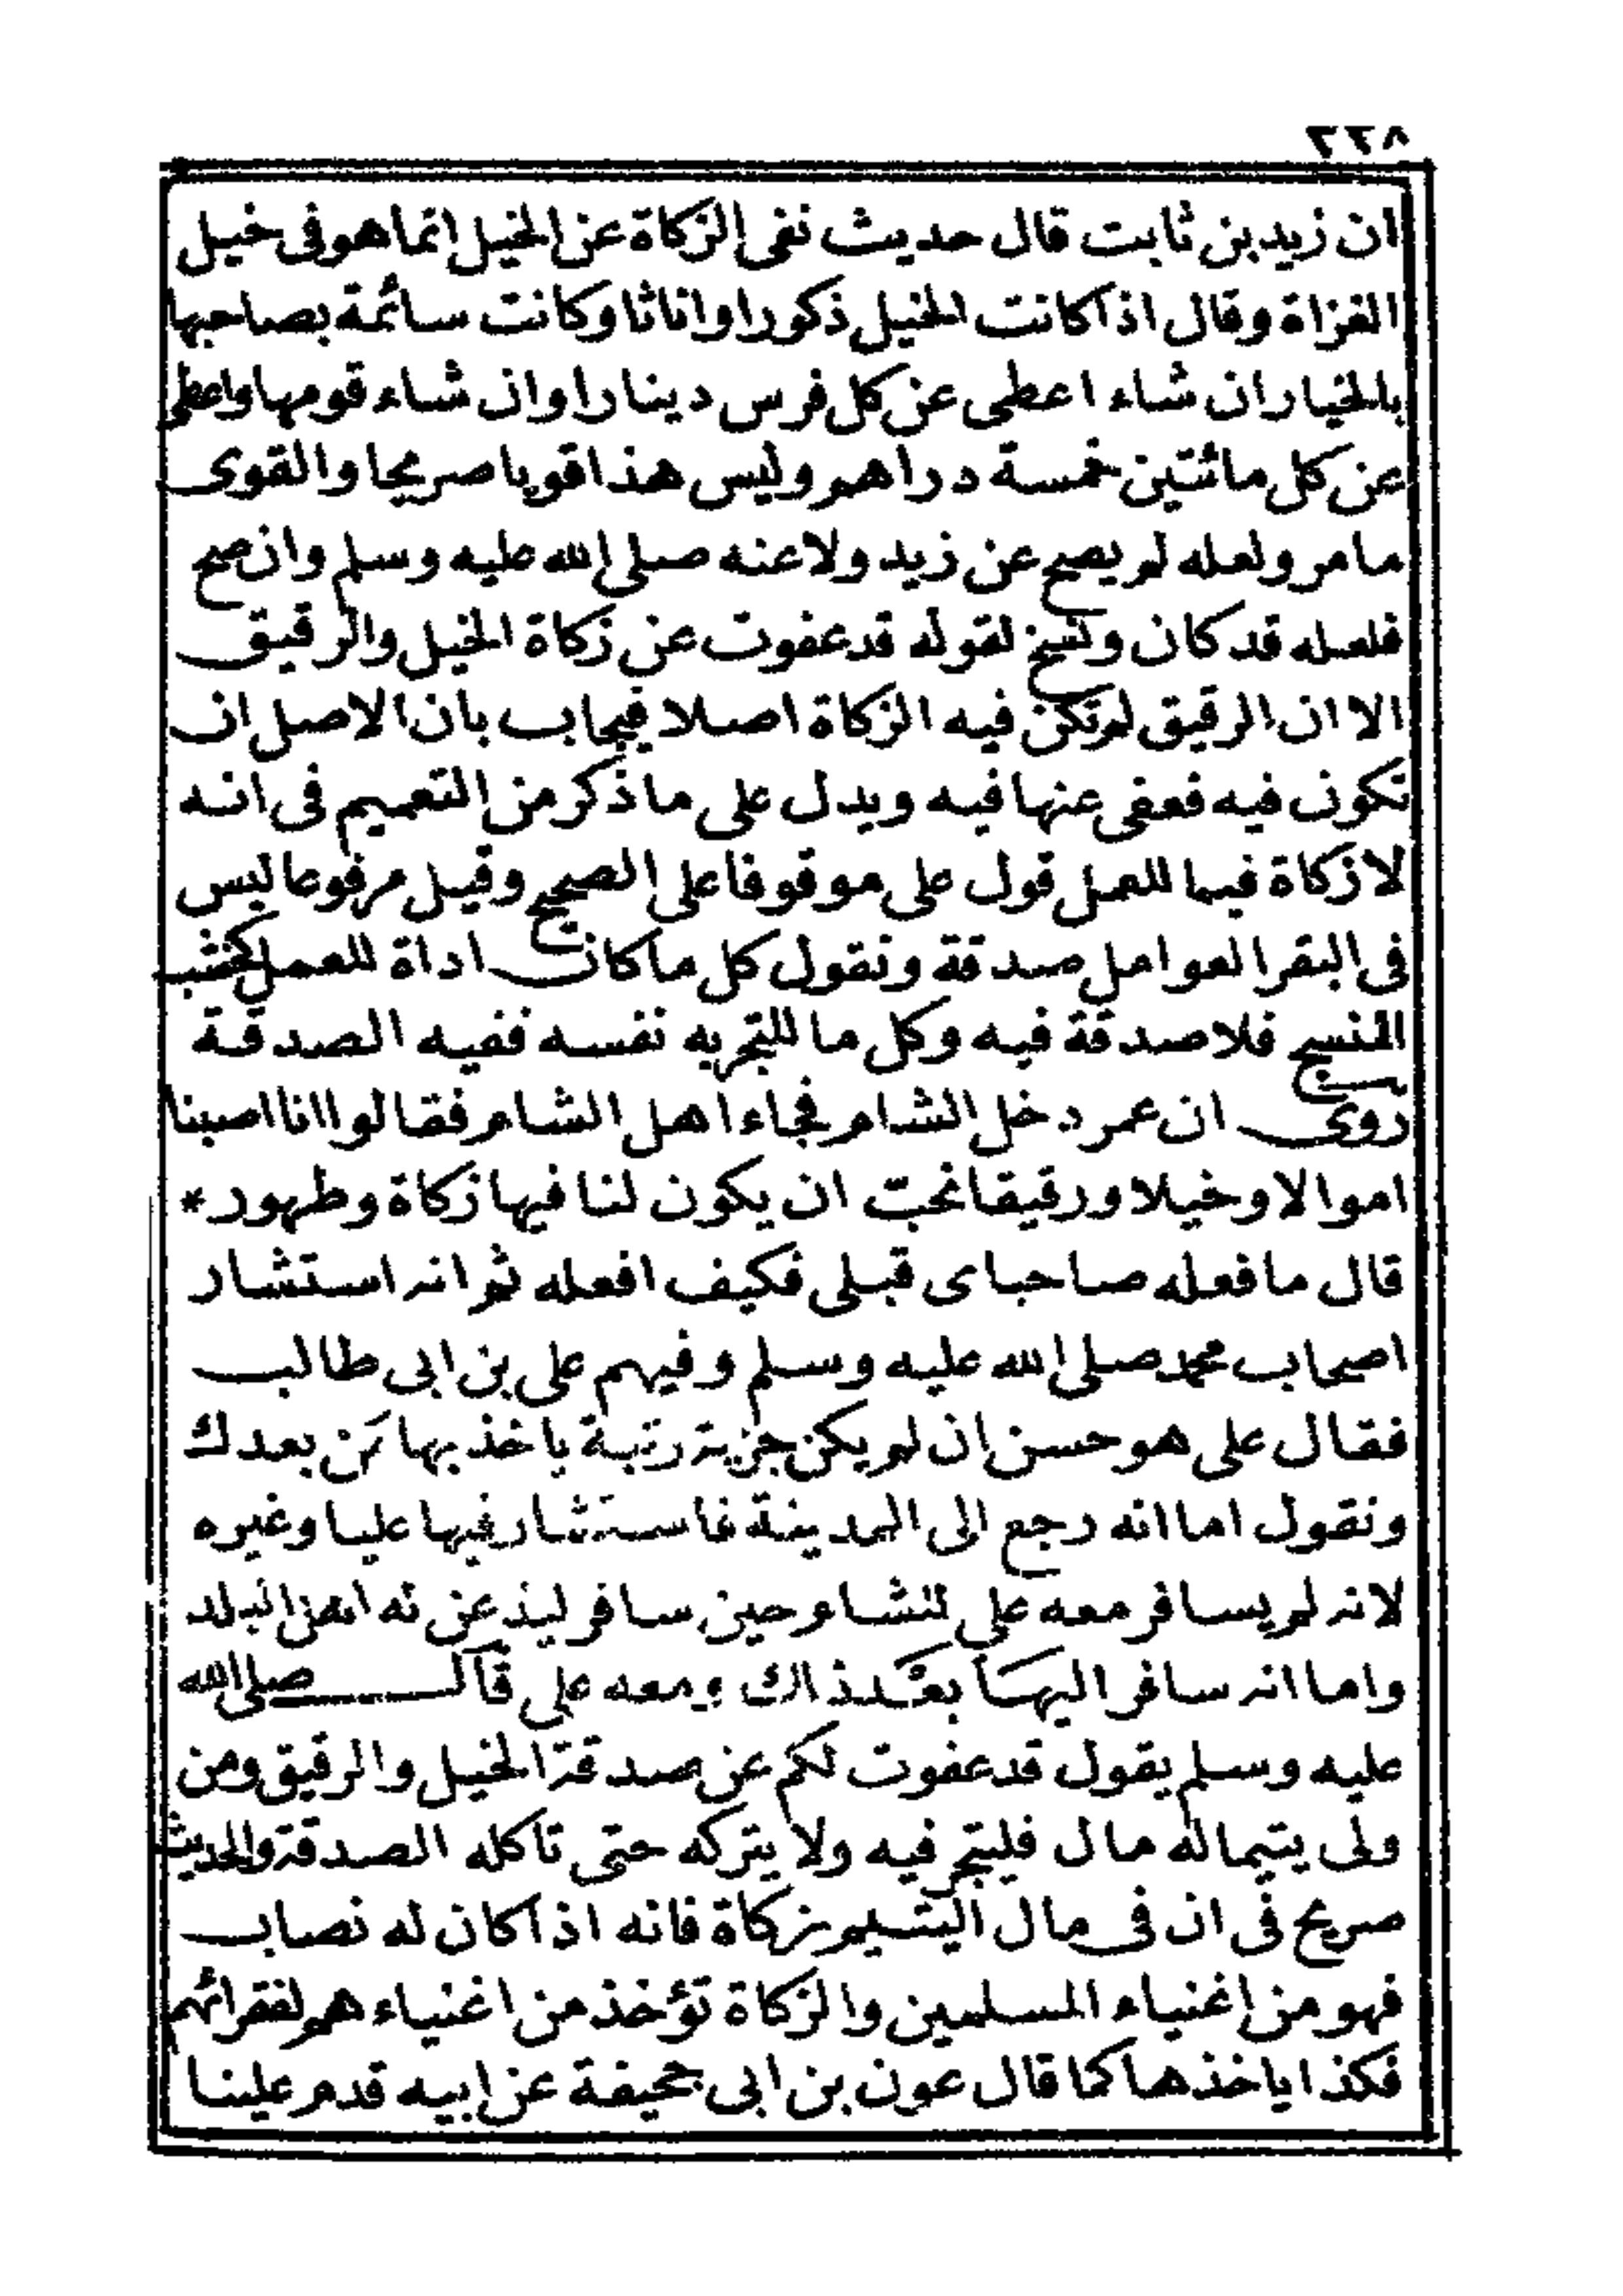 ٢٢٨
ان زيد بن ثابت قال حديث نفى الزكاة عن الخيل انما هو فى خيل
الغزاة وقال اذا كانت الخيل ذكورا واناثا وكانت سائمة بصاحبها
بالخيار ان شاء اعطى عن كل فرس دينارا وان شاء قومها واعطى
عن كل مائتين خمسة دراهم وليس هذا قويا صريحا والقوى
ما مر ولعله لم يصح عن زيد ولا عنه صلى الله عليه وسلم وان صح
فلعله قد كان ونسخ لقوله قد عفوت عن زكاة الخيل والرقيق
الا ان الرقيق لم تكن فيه الزكاة اصلا فيجاب بان الاصل ان
تكون فيه فعفى عنها فيه ويدل على ما ذكر من التعميم فى انه
لا زكاة فيما للعمل قول على موقوفا على الصحيح وقيل مرفوعا ليس
فى البقر العوامل صدقة ونقول كل ما كان اداة للعمل كخشب
المنسج فلا صدقة فيه وكل ما للتجر به نفسه ففيه الصدقة
روى ان عمر دخل الشام فجاء اهل الشام فقالوا انا اصبنا
اموالا وخيلا ورقيقا نحب ان يكون لنا فيها زكاة وطهور *
قال ما فعله صاحباى قبلى فكيف افعله ثم انه استشار
اصحاب محمد صلى الله عليه وسلم وفيهم على بن ابى طالب
فقال على هو حسن ان لم يكن جزية رتبة ياخذ بها من بعدك
ونقول اما انه رجع الى المدينة فاستشار فيها عليا وغيره
لانه لم يسافر معه على للشام حين سافر ليذعن له اهل البلد
واما انه سافر اليها بعد ذلك ومعه على قال صلى الله
عليه وسلم يقول قد عفوت لكم عن صدقة الخيل والرقيق ومن
ولى يتيما له مال فليتجر فيه ولا يتركه حتى تاكله الصدقة والحديث
صريح فى ان فى مال اليتيم زكاة فانه اذا كان له نصاب
فهو من اغنياء المسلمين والزكاة تؤخذ من اغنياءهم لفقرائهم
فكذا ياخذها كما قال عون بن ابى جحيفة عن ابيه قدم علينا